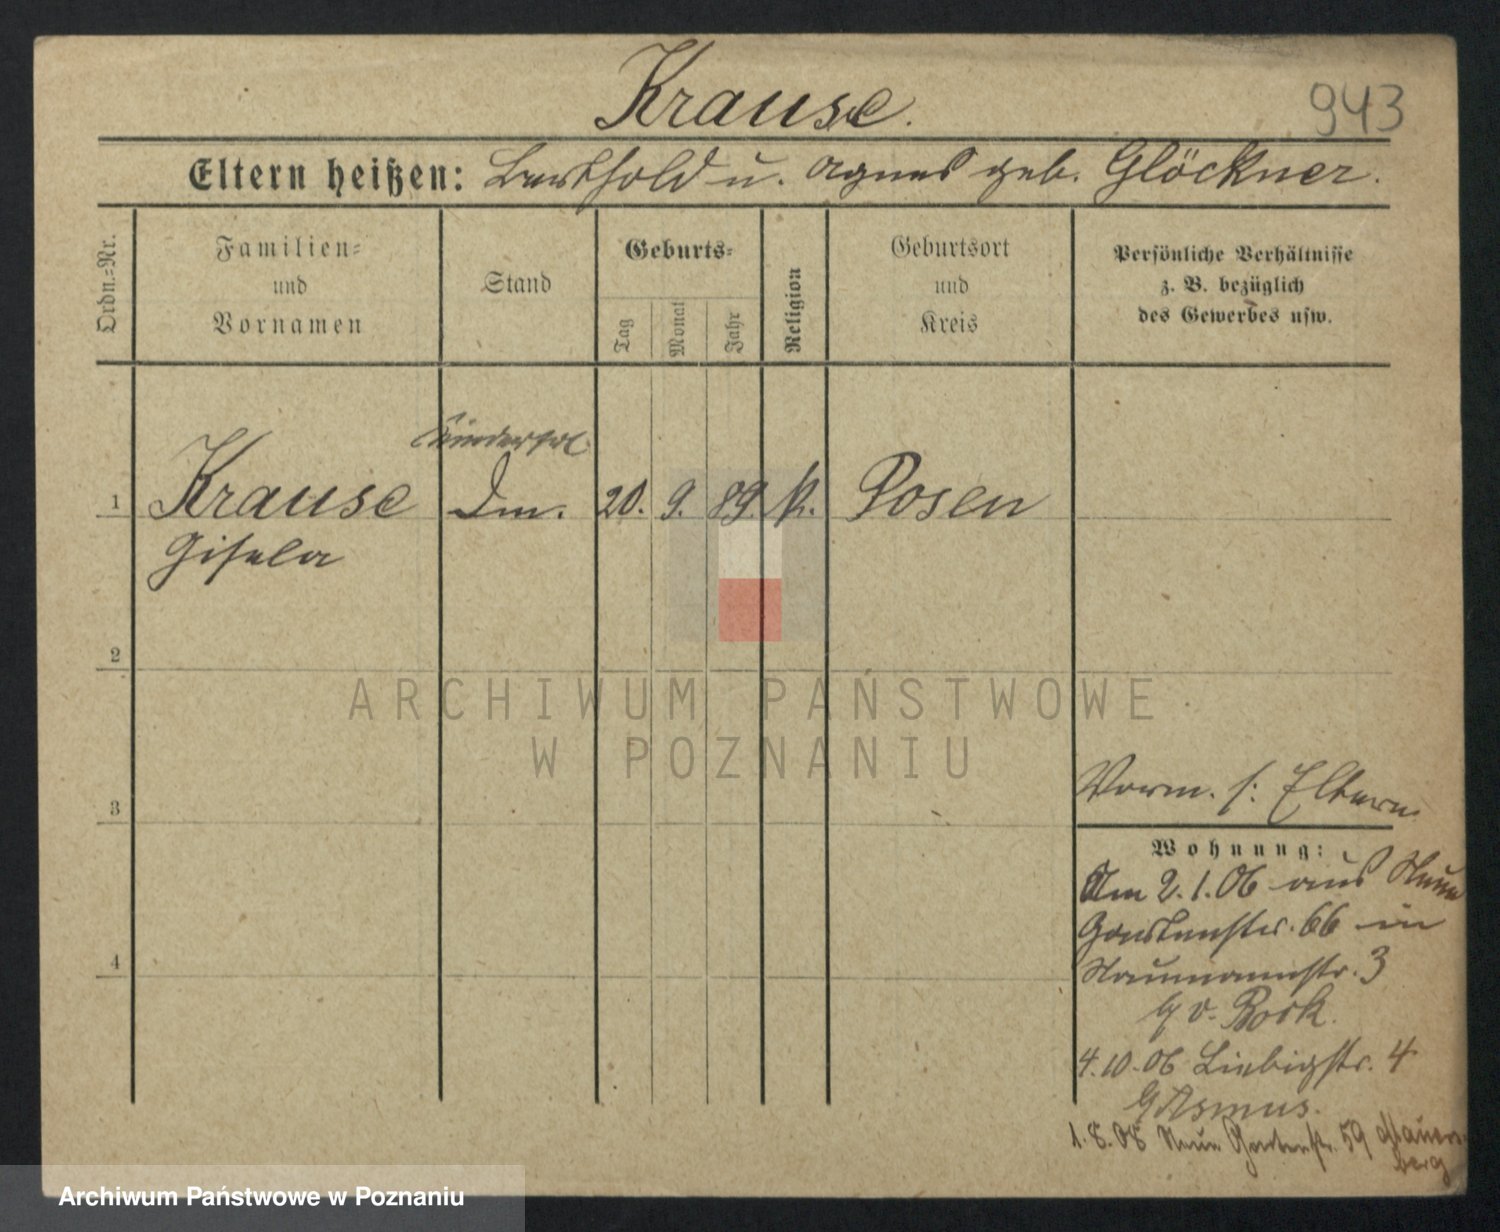 Krause.
943
Eltern heißen: Berthold u. Agnes geb. Glöckner.
Ordn.-Nr.
Familien- und Vornamen
Stand
Geburts-
Tag
Monat
Jahr
Religion
Geburtsort und Kreis
Persönliche Verhältnisse z. B. bezüglich des Gewerbes usw.
Kinderfrl.
1 Krause 20. 9. 89. k. Posen
Gisela
2
ARCHIWUM PAŃSTWOWE
W POZNANIU
3
4
Vorm. s. Eltern
Wohnung:
Am 2.1.06 aus Neue
Gartenstr. 66 in
Naumannstr. 3
b/ v. Bork.
4.10.06 Liebigstr. 4
b/ Asmus.
1.8.08 Neue Gartenstr. 59 Mauers-
berg
Archiwum Państwowe w Poznaniu